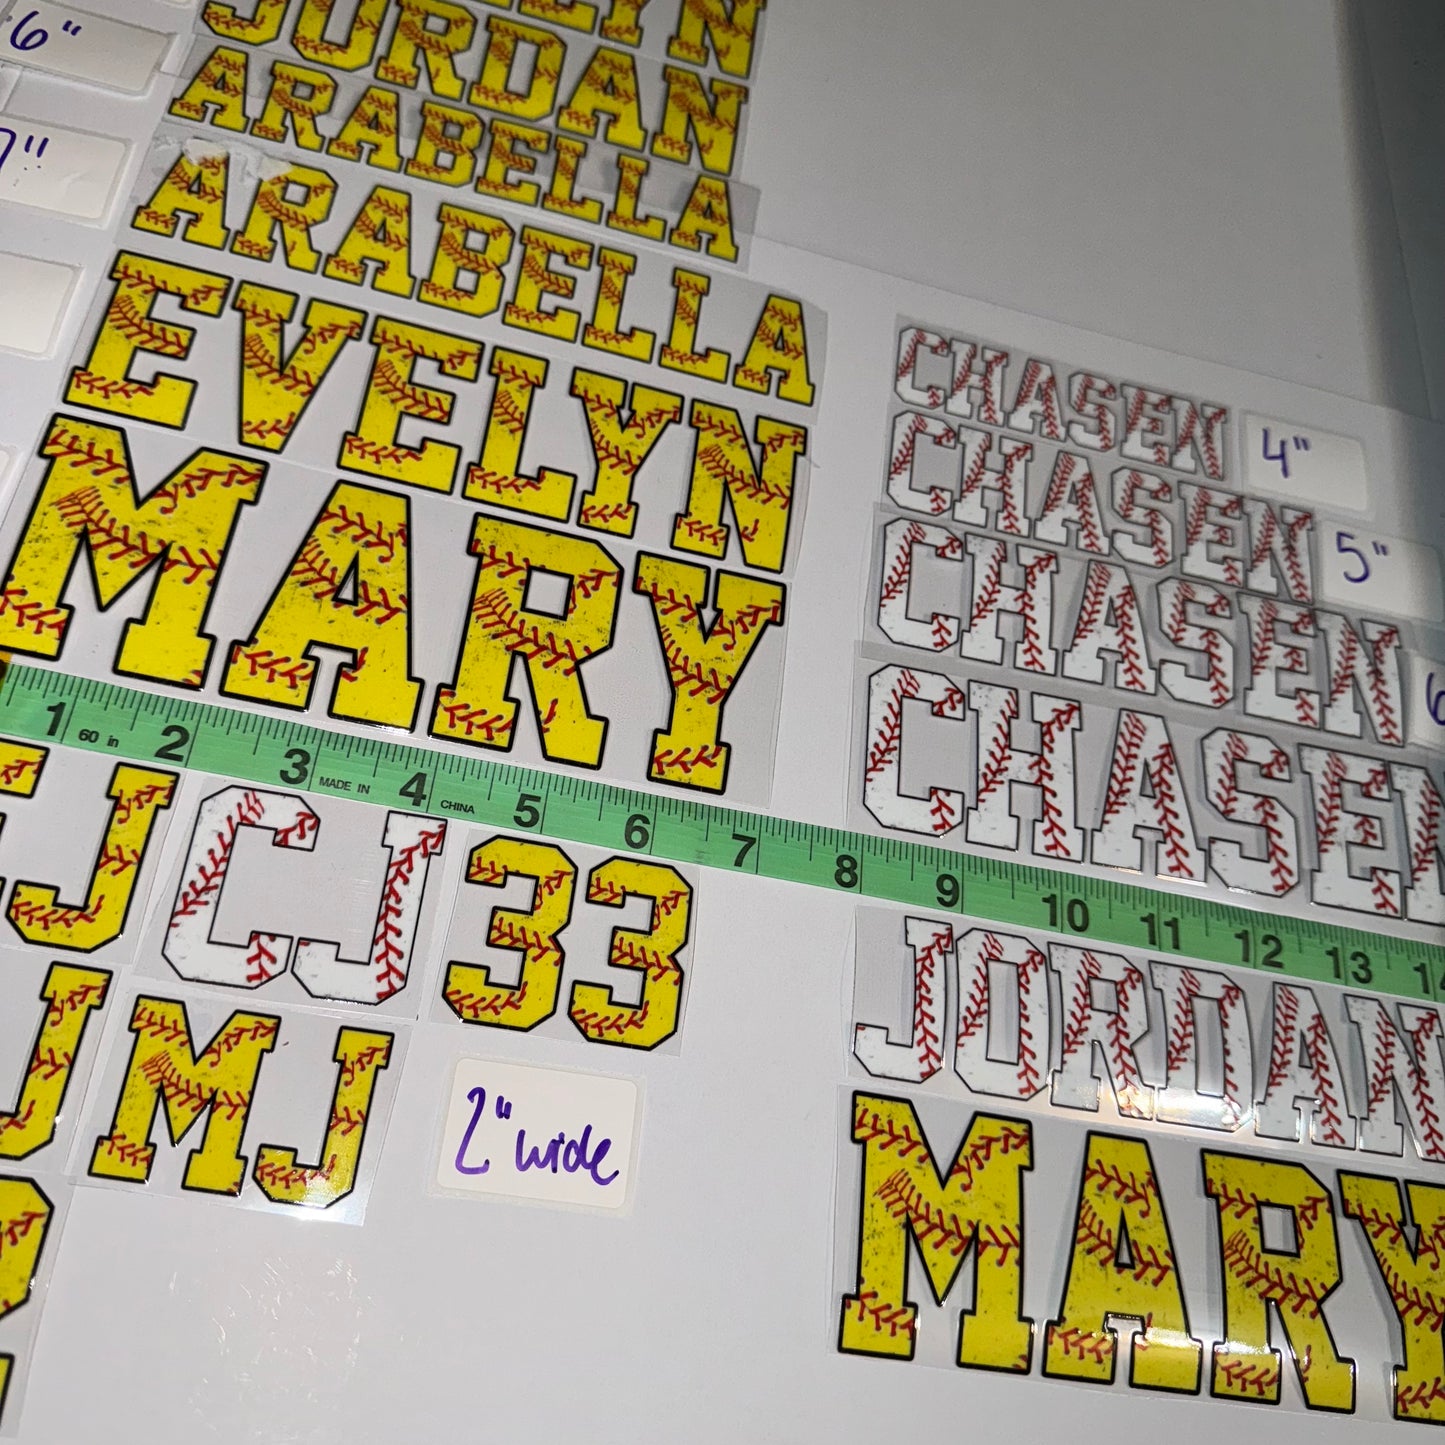 6"
JORDAN
ARABELLA
7"
ARABELLA
EVELYN
MARY
CHASEN
4"
CHASEN
5"
CHASEN
CHASEN
1 60 in 2 3 MADE IN 4 CHINA 5 6 7 8 9 10 11 12 13
J
CJ
33
JORDAN
J
MJ
2" wide
MARY